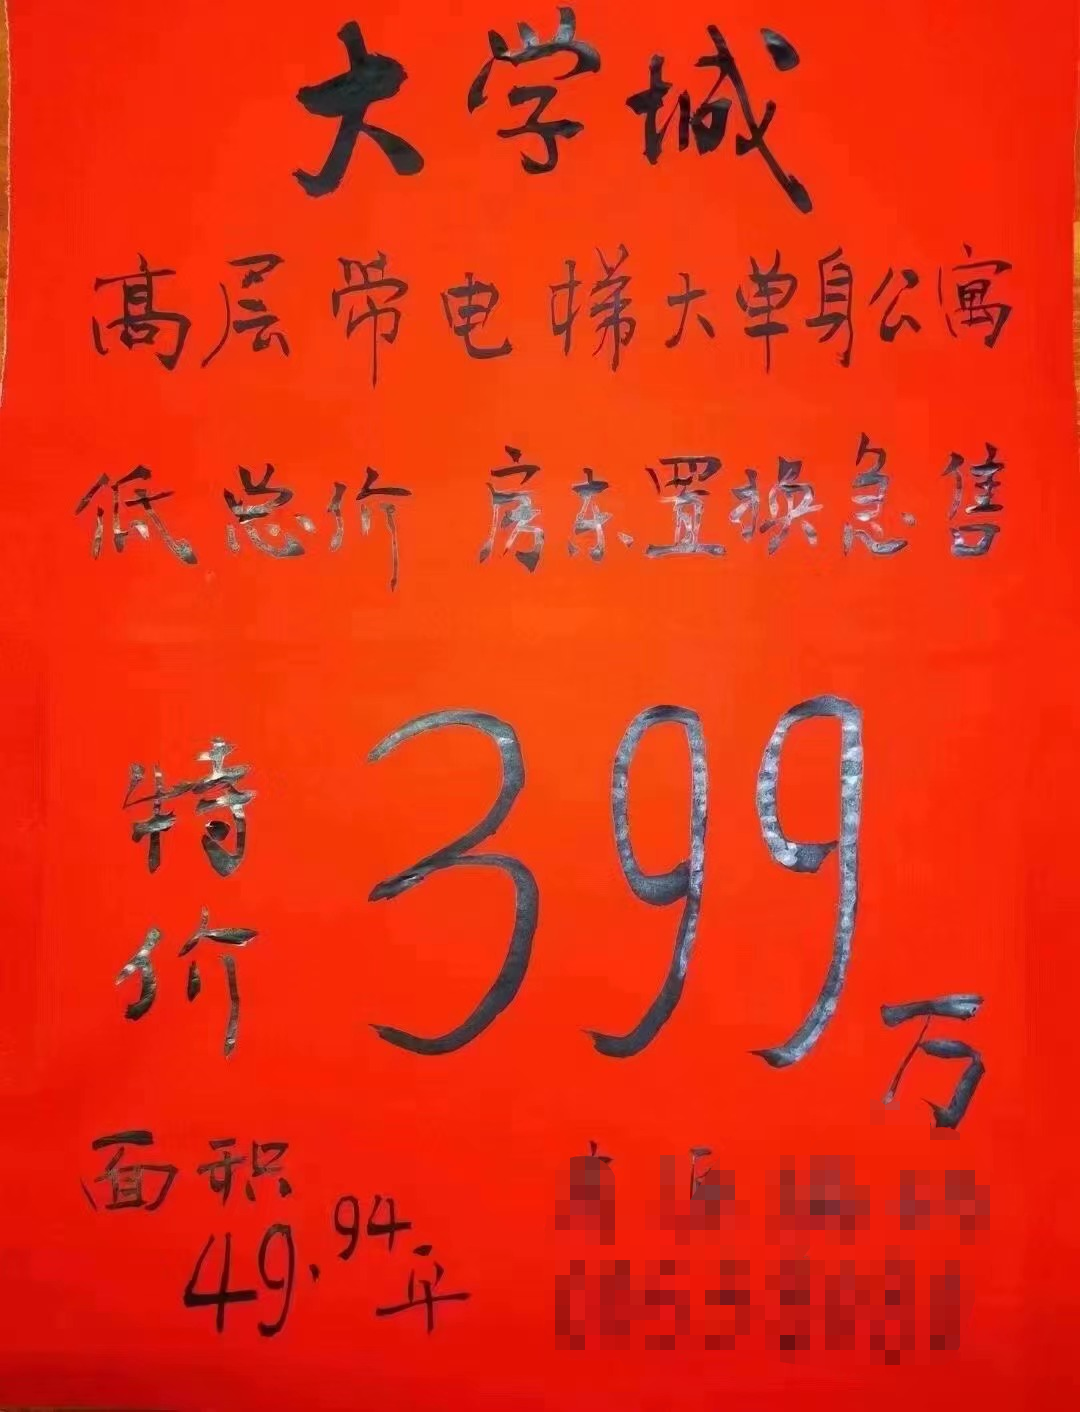 大学城
高层带电梯大单身公寓
低总价 房东置换急售
特价
399万
面积
49.94平